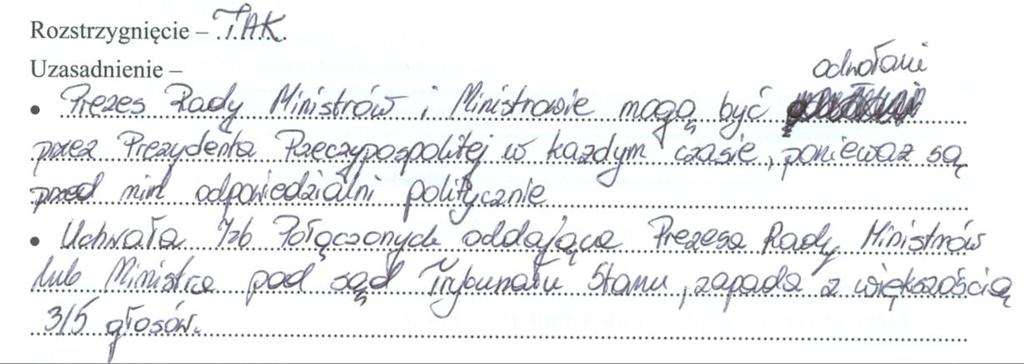 Rozstrzygnięcie – TAK.
Uzasadnienie –
odwołani
• Prezes Rady Ministrów i Ministrowie mogą być
przez Prezydenta Rzeczypospolitej w każdym czasie, ponieważ są
przed nim odpowiedzialni politycznie
• Uchwała Izb Połączonych oddająca Prezesa Rady Ministrów
lub Ministra pod sąd Trybunału Stanu, zapada z większością
3/5 głosów.